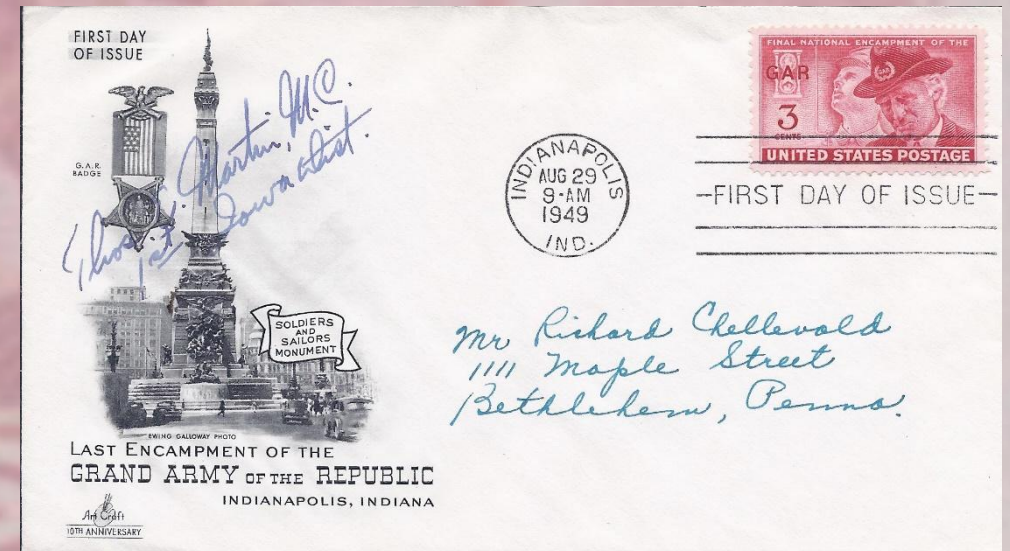 FIRST DAY
OF ISSUE
G.A.R.
BADGE
Thos. E. Martin, M.C.
1st Iowa Dist.
SOLDIERS
AND
SAILORS
MONUMENT
EWING GALLOWAY PHOTO
LAST ENCAMPMENT OF THE
GRAND ARMY OF THE REPUBLIC
INDIANAPOLIS, INDIANA
Art Craft
10TH ANNIVERSARY
INDIANAPOLIS
AUG 29
9-AM
1949
IND.
FINAL NATIONAL ENCAMPMENT OF THE
GAR
GAR
3
CENTS
UNITED STATES POSTAGE
FIRST DAY OF ISSUE
Mr Richard Chellevold
1111 Maple Street
Bethlehem, Penna.